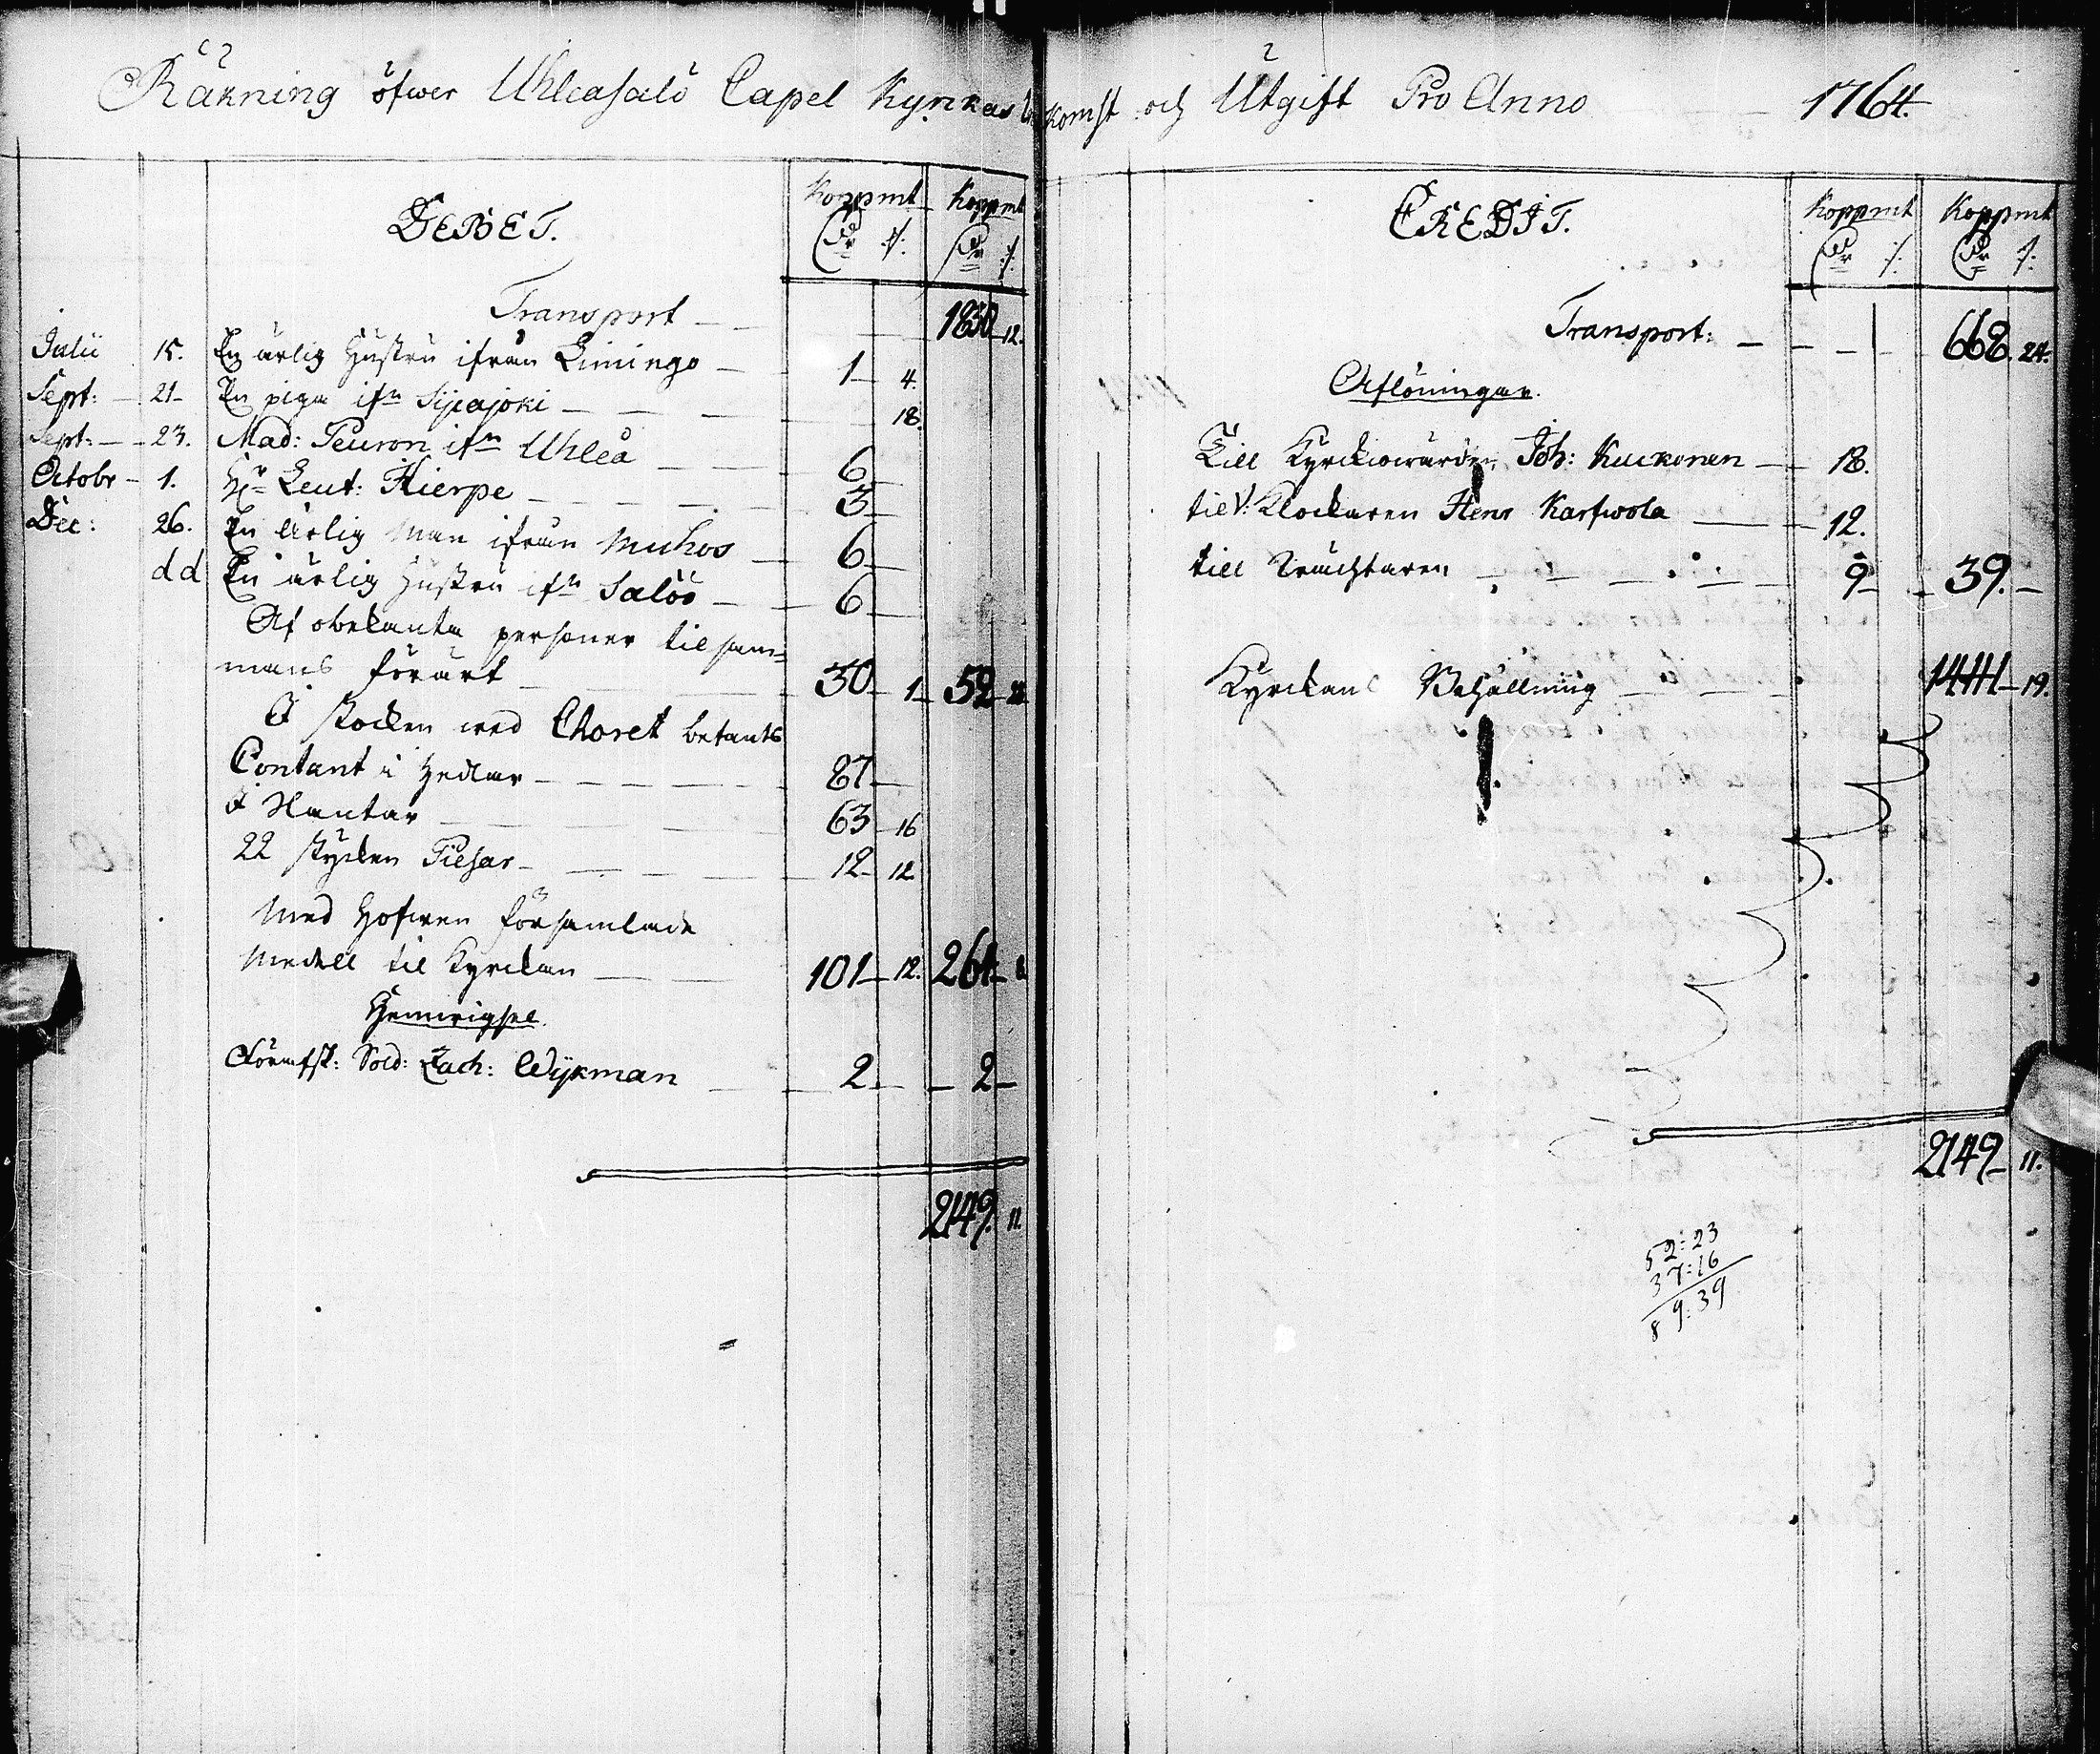 Räkning öfwer Uhleåsalö Capel Kyrkas Inkomst och Utgift Pro Anno 1764.
DEBET. Koppmt Koppmt
Dr ./. Dr ./.
Transport 1830 12.
Julii 15. En ärlig hustru ifrån Limingo 1 4.
Sept: 21 En piga ifn Sijcajoki 18.
Sept: 23. Mad: Peuron ifn Uhleå 6
Octobr 1. Hr Leut: Hierpe 3
Dec: 26. En ärlig Man ifrån Muhos 6
d d En ärlig hustru ifn Salöö 6
Af obekanta personer til sam=
mans förärt 30 1 52 23
I stocken wid Choret bekants
Contant i Hedlar 87
I Slantar 63 16
22 stycken Piesar 12 12
Med Hofwen församlade
Medell til Kyrckan 101 12. 264 8
Hemwigsel.
Afförmfst: Sold: Zach: Wijkman 2 2
2149. 11.
CREDIT. Koppmt Koppmt
Dr ./. Dr ./.
Transport: 668. 24.
Aflöningar.
Till Kyrckiowärden Joh: Kuckonen 18.
til V: Klockaren Henr Karfwola 12.
till Trächtaren 9 39.
Kyrckans Behållning 1441 19.
2149 11.
52:23
37:16
89:39